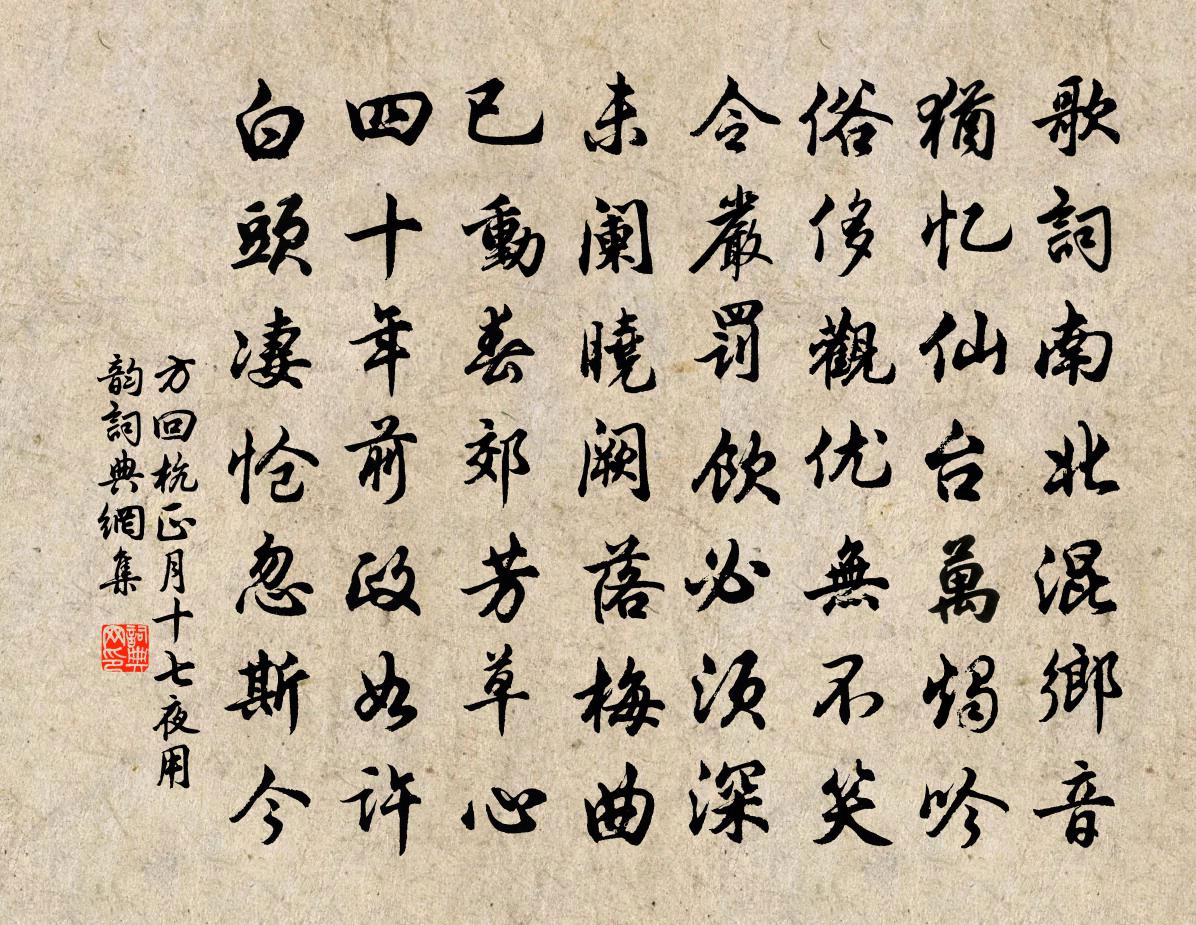 歌詞南北混鄉音
猶忆仙台萬燭吟
俗侈觀优無不笑
令嚴罰飲必須深
未阑曉阙落梅曲
已動春郊芳草心
四十年前政如许
白頭凄怆忽斯今
方回杭正月十七夜用
韵詞典網集
詞典网印